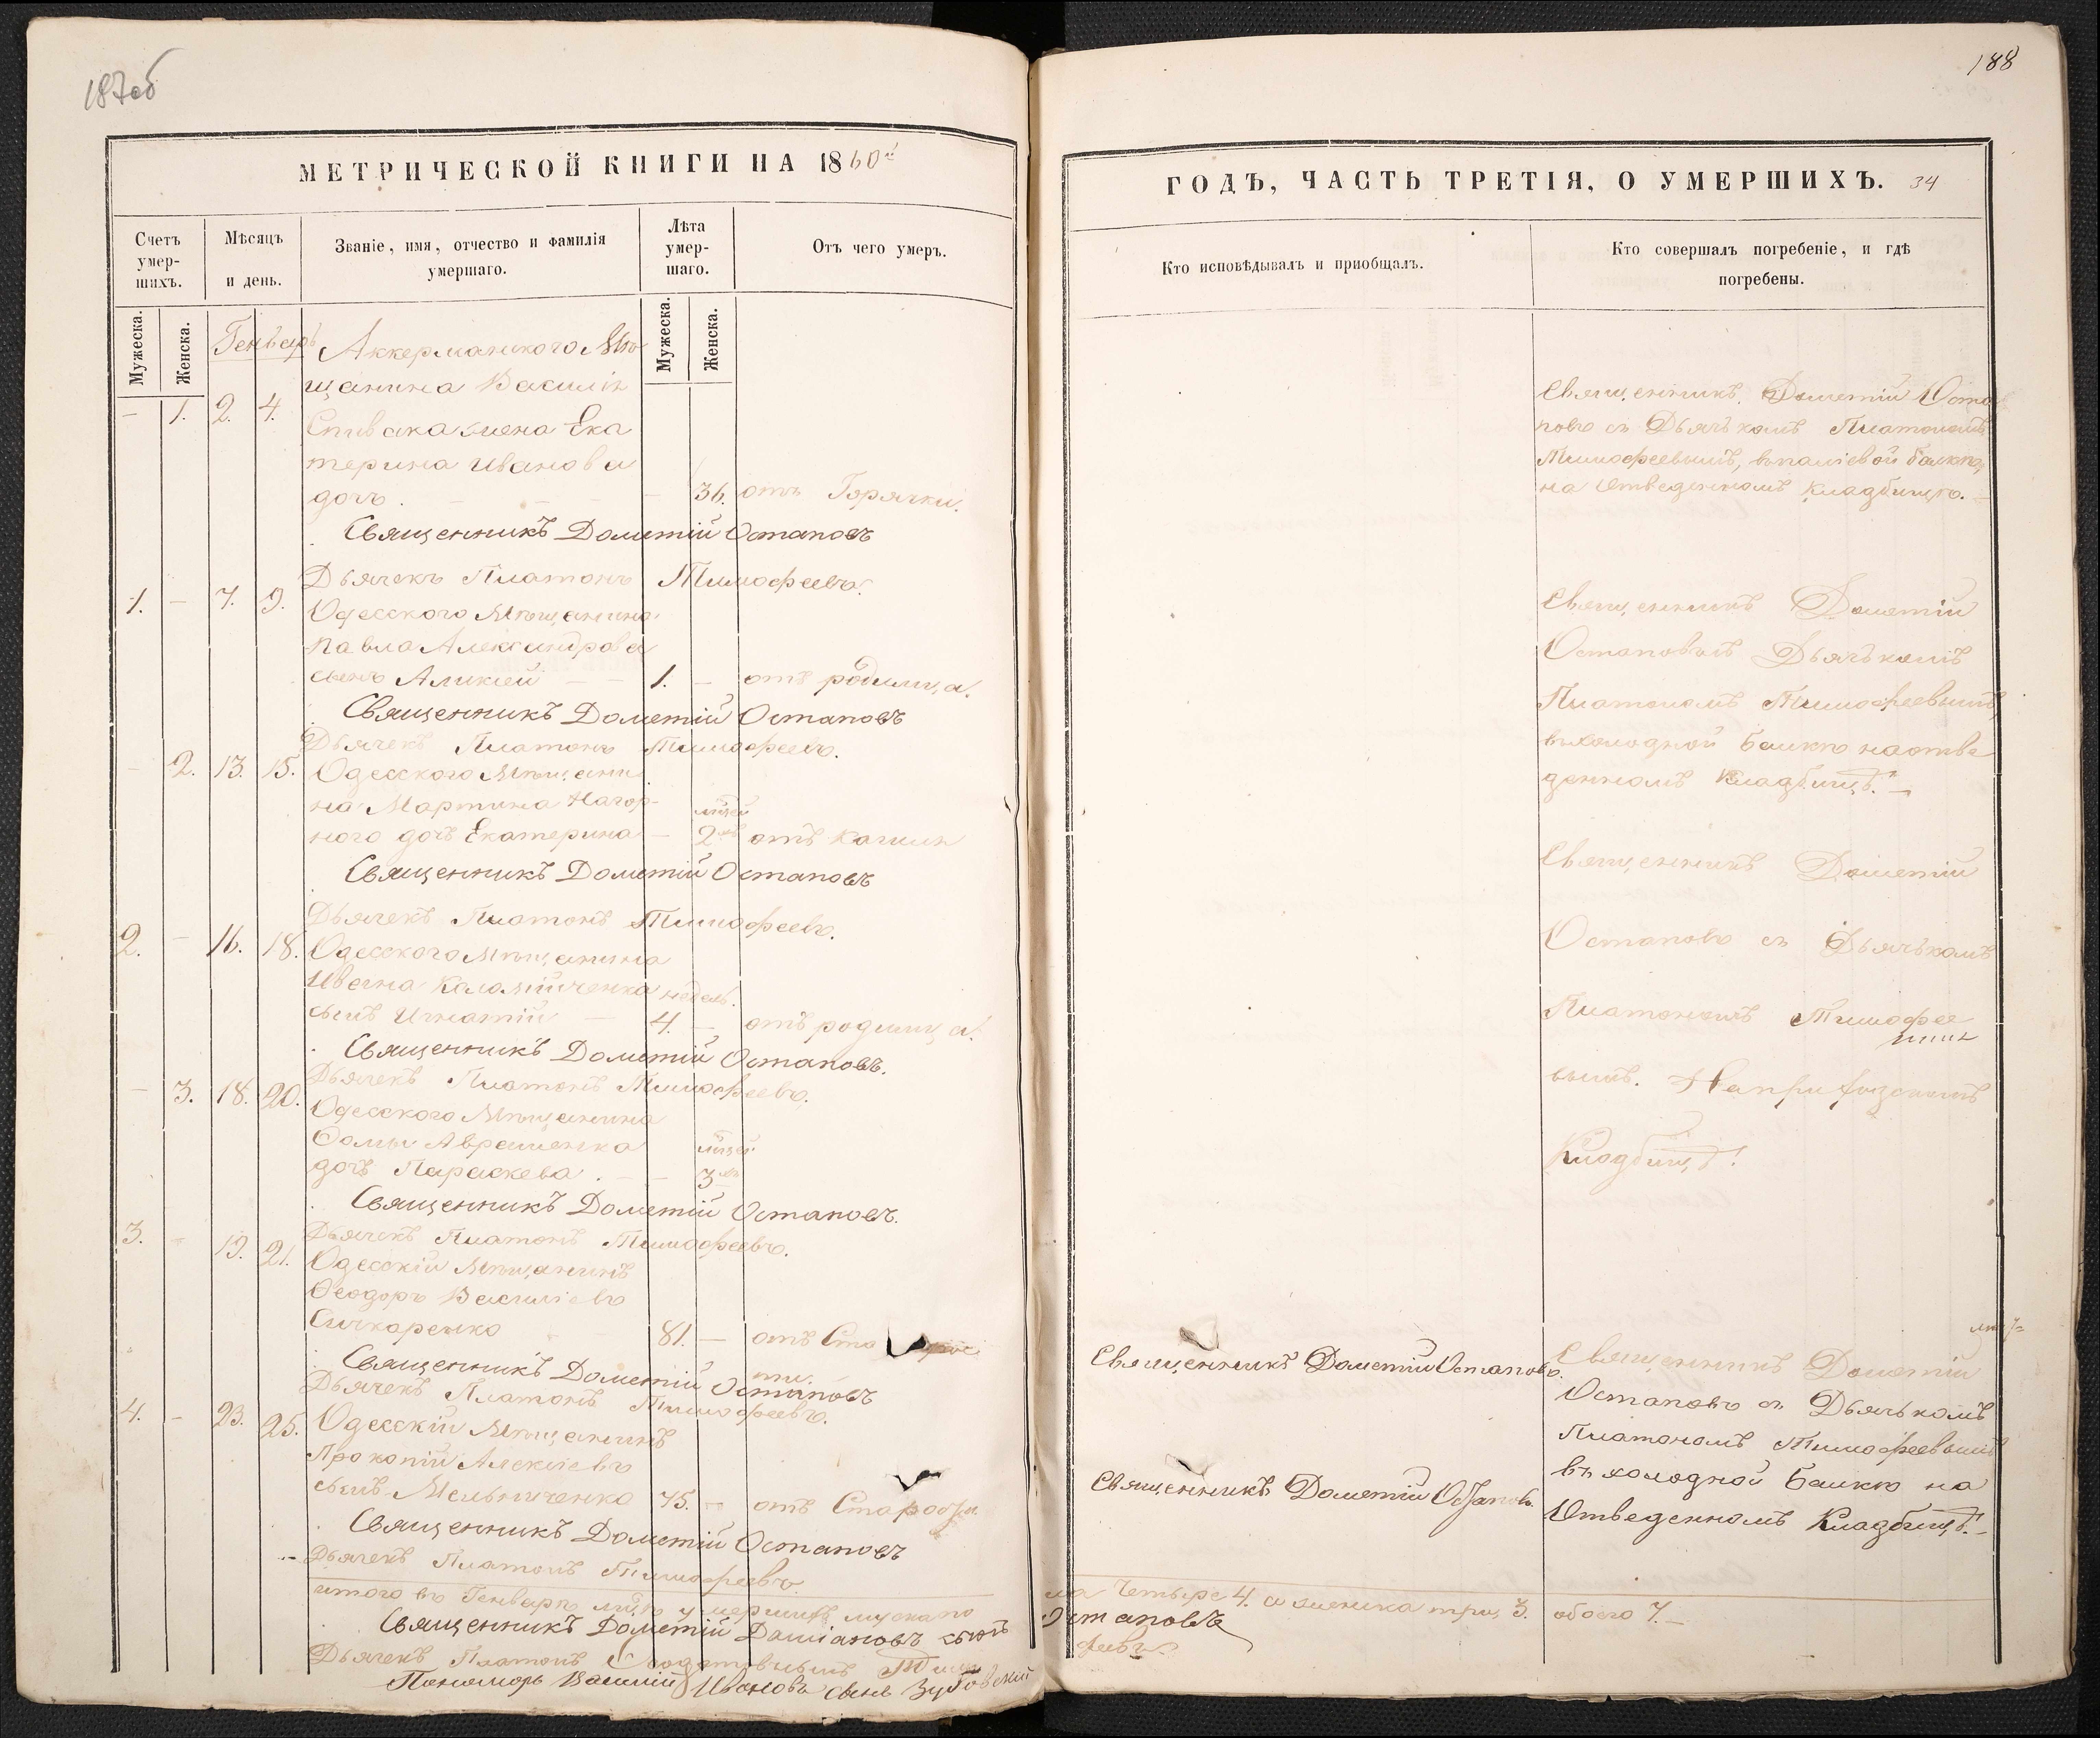 187об
МЕТРИЧЕСКОЙ КНИГИ НА 1860й
Счетъ умер-шихъ.
Мѣсяцъ и день.
Званіе, имя, отчество и фамилія умершаго.
Лѣта умер-шаго.
Отъ чего умеръ.
Мужеска.
Женска.
Мужеска.
Женска.
Генварь
Аккерманского Мѣ
щанина Василія
— 1. 2. 4.
Спивака жена Ека
терина Иванова
дочь. — 36. отъ Горячки.
Священникъ Дометій Остаповъ
Дьячекъ Платонъ Тимофеевъ.
1. — 7. 9.
Одесского Мѣщанина
Павла Александрова
сынъ Аликсей — 1. — отъ родимца.
Священникъ Дометій Остаповъ
Дьячекъ Платонъ Тимофеевъ.
— 2. 13. 15.
Одесского Мѣщани
на Мартина Нагор-
ного дочь Екатерина — 2 отъ кашля
Священникъ Дометій Остаповъ
Дьячекъ Платонъ Тимофеевъ.
2. — 16. 18.
Одесского Мѣщанина
Ивана недель.
сынъ Игнатій — 4. — отъ родимца.
Священникъ Дометій Остаповъ.
Дьячекъ Платонъ Тимофеевъ.
— 3. 18. 20.
Одесского Мѣщанина
Фомы Авраменка
дочь Параскева. — 3
Священникъ Дометій Остаповъ.
Дьячекъ Платонъ Тимофеевъ.
3. — 19. 21.
Одесскій Мѣщанинъ
Феодоръ Василіевъ
Сичкаренко 81. — отъ Ста
Священникъ Дометій Остаповъ
Дьячекъ Платонъ Тимофеевъ.
4. — 23. 25.
Одесскій Мѣщанинъ
Прокопій Алексіевъ
сынъ Мельниченко 75. — отъ Старости
Священникъ Дометій Остаповъ
Дьячекъ Платонъ Тимофеевъ.
итого въ Генварѣ умершихъ мужска по
Священникъ Дометій Даміановъ сынъ
Дьячекъ Платонъ Тимо
Пономарь Василій Ивановъ сынъ Зубовскій
188
ГОДЪ, ЧАСТЬ ТРЕТІЯ, О УМЕРШИХЪ. 34
Кто исповѣдывалъ и приобщалъ.
Кто совершалъ погребеніе, и гдѣ погребены.
Священникъ Дометій Оста
повъ съ Дьячькомъ Платономъ
Тимофеевымъ, балкѣ,
на Отведенномъ Кладбищѣ.
Священникъ Дометій
Остаповъ съ Дьячькомъ
Платономъ Тимофеевымъ,
въ холодной балкѣ на отве
денномъ Кладбищѣ. —
Священникъ Дометій
Остаповъ съ Дьячькомъ
Платономъ Тимофее
вымъ. На приходскомъ
Кладбищѣ.
Священникъ Дометій Остаповъ.
Священникъ Дометій
Остаповъ съ Дьячькомъ
Платономъ Тимофеевымъ
въ холодной балкѣ на
Отведенномъ Кладбищѣ. —
Священникъ Дометій Остаповъ.
ла Четыре 4. а женска три 3. обоего 7. —
Остаповъ
феевъ